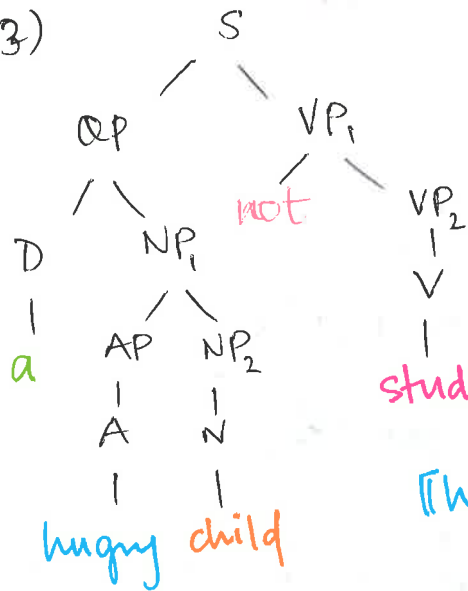 3) S
QP VP₁
not VP₂
D NP₁
V
a AP NP₂
stud
A N
⟦h
hugry child